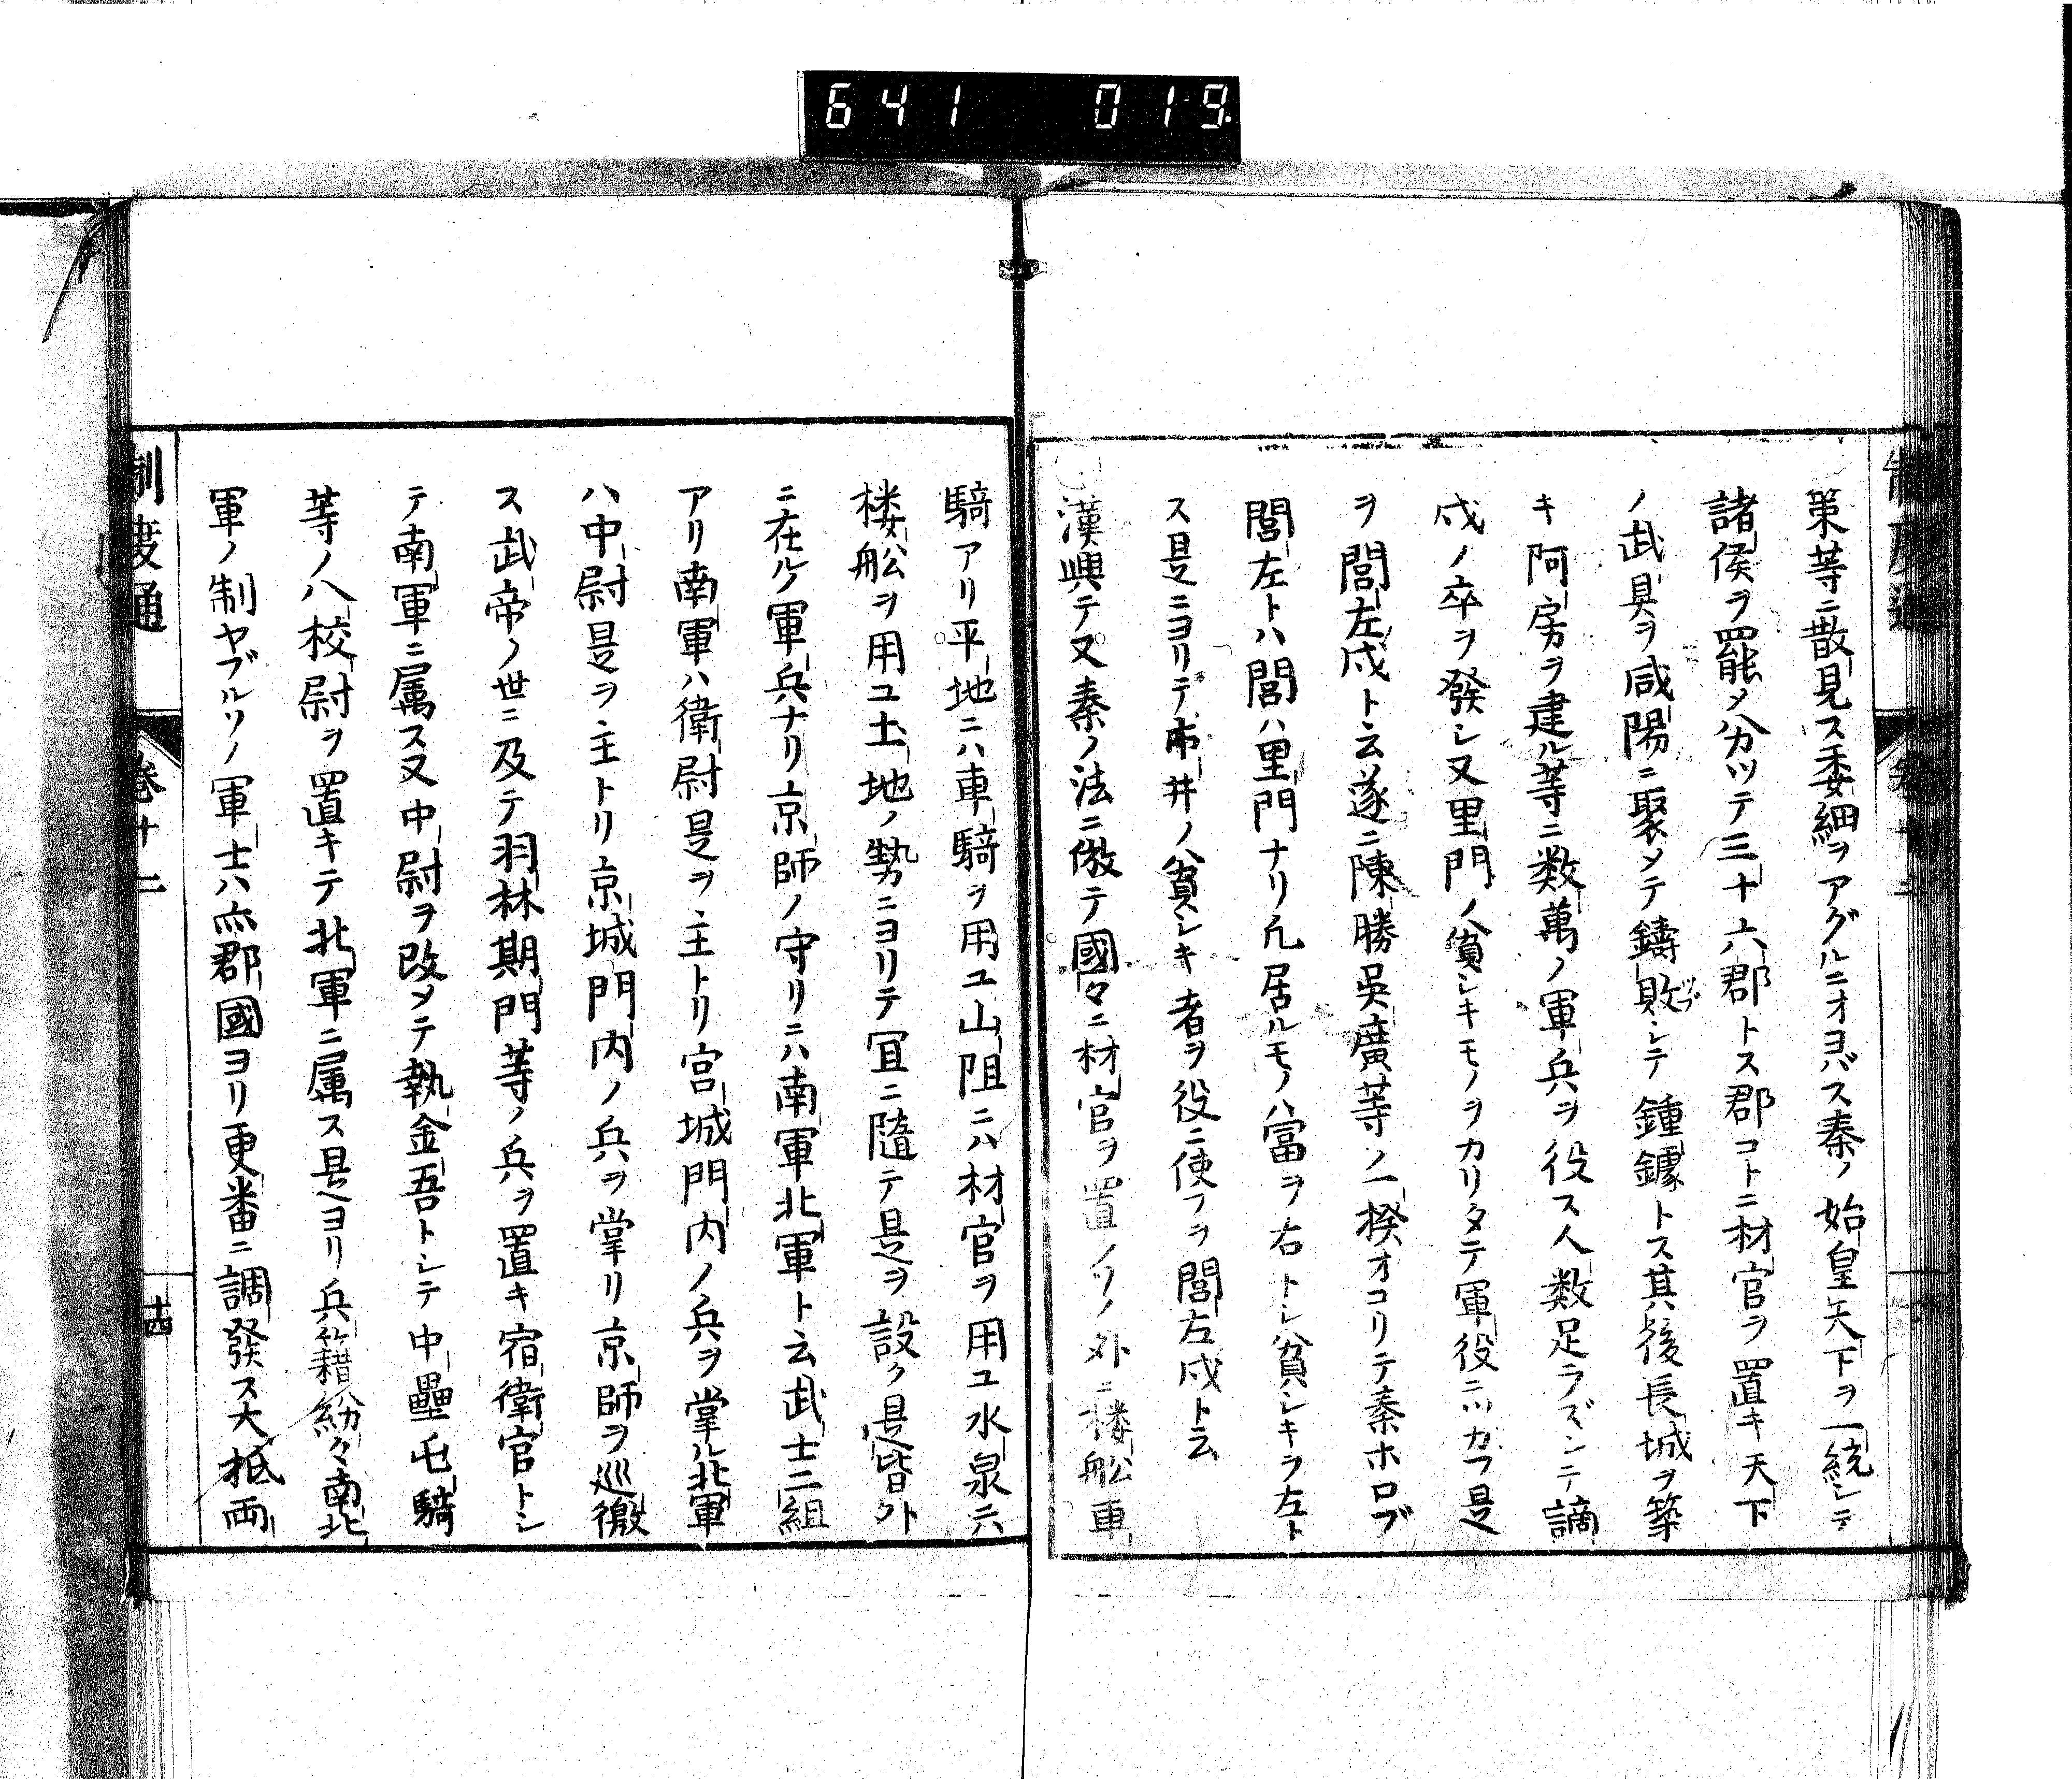 641 019
策等ニ散見ス委細ヲアグルニオヨバス秦ノ始皇天下ヲ一統シテ
諸侯ヲ罷メ分ツテ三十六郡トス郡コトニ材官ヲ置キ天下
ノ武具ヲ咸陽ニ聚メテ鑄敗シテ鍾鐻トス其後長城ヲ築
キ阿房ヲ建ル等ニ数萬ノ軍兵ヲ役ス人数足ラズシテ謫
戍ノ卒ヲ發シ又里門ノ貧シキモノヲカリタテ軍役ニツカフ是
ヲ閭左戍ト云遂ニ陳勝吳廣等ノ一揆オコリテ秦ホロブ
閭左トハ閭ハ里門ナリ凡居ルモノハ富ヲ右トシ貧シキヲ左ト
ス是ニヨリテ市井ノ貧シキ者ヲ役ニ使フヲ閭左戍ト云
漢興テ又秦ノ法ニ倣テ國々ニ材官ヲ置ノソノ外ニ楼舩車
騎アリ平地ニハ車騎ヲ用ユ山阻ニハ材官ヲ用ユ水泉ニハ
楼舩ヲ用ユ土地ノ勢ニヨリテ冝ニ隨テ是ヲ設ク是皆外
ニ在ルノ軍兵ナリ京師ノ守リニハ南軍北軍ト云武士二組
アリ南軍ハ衛尉是ヲ主トリ宮城門内ノ兵ヲ掌ル北軍
ハ中尉是ヲ主トリ京城門内ノ兵ヲ掌リ京師ヲ巡徼
ス武帝ノ世ニ及テ羽林期門等ノ兵ヲ置キ宿衛官トシ
テ南軍ニ属ス又中尉ヲ改メテ執金吾トシテ中壘屯騎
等ノ八校尉ヲ置キテ北軍ニ属ス是ヨリ兵籍紛々南北
軍ノ制ヤブルソノ軍士ハ亦郡國ヨリ更番ニ調發ス大抵両
制度通 巻十二 十四